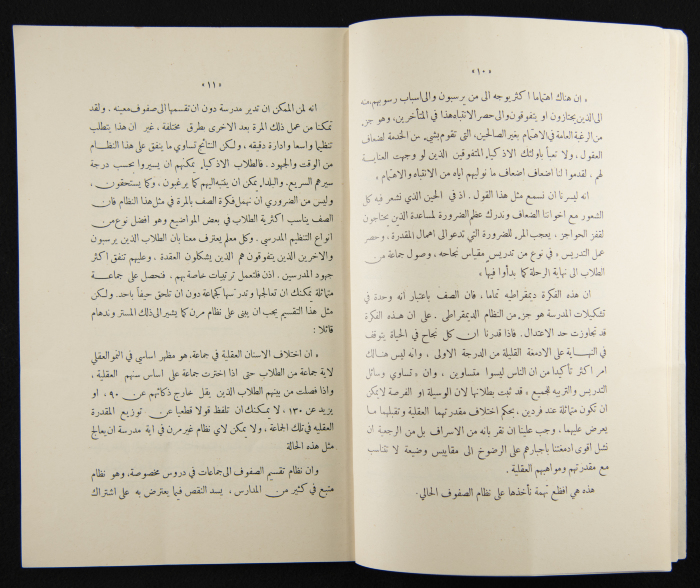 «١٠»
« ان هناك اهتماما اكثر يوجه الى من يرسبون والى اسباب رسوبهم منه
الى الذين يجتازون او يتفوقون والى حصر الانتباه هذا في المتأخرين، وهو جزء
من الرغبة العامة في الاهتمام بغير الصالحين، التي تقوم بشيء من الخدمة لضعاف
العقول. ولا تعبأ باولئك الاذكياء المتفوقين الذين لو وجهت العناية
لهم، لقدموا لنا اضعاف اضعاف ما نوليهم اياه من الانتباه والاهتمام »
انه ليسرنا ان نسمع مثل هذا القول. اذ في الحين الذي نشعر فيه كل
الشعور مع اخواننا الضعاف وندرك عظم الضرورة لمساعدة الذين يحتاجون
لقفز الحواجز، يعجب المرء للضرورة التي تدعو الى اهمال المقدرة. وحصر
عمل التدريس « في نوع من تدريس مقياس نجاحه، وصول جماعة من
الطلاب الى نهاية الرحلة كما بدأوا فيها »
ان هذه الفكرة ديمقراطيه تماما، فان الصف باعتبار انه وحدة في
تشكيلات المدرسة هو جزء من النظام الديمقراطي. على ان هذه الفكرة
قد تجاوزت حد الاعتدال. فاذا قدرنا ان كل نجاح في الحياة يتوقف
في النهاية على الادمغة القليلة من الدرجة الاولى، وانه ليس هنالك
امر اكثر تأكيدا من ان الناس ليسوا متساوين، وان « تساوي وسائل
التدريس والتربيه للجميع » قد ثبت بطلانها لان الوسيلة او الفرصة لايمكن
ان تكون متماثلة عند فردين، بحكم اختلاف مقدرتهما العقلية وتقبلهما ما
يعرض عليهما، وجب علينا ان نقر بانه من الاسراف بل من الرجعية ان
نشل اقوى ادمغتنا باجبارهم على الرضوخ الى مقاييس وضيعة لا تتناسب
مع مقدرتهم ومواهبهم العقلية.
هذه هي افظع تهمة نأخذها على نظام الصفوف الحالي.
«١١»
انه لمن الممكن ان تدير مدرسة دون ان تقسمها الى صفوف معينه. ولقد
تمكنا من عمل ذلك المرة بعد الاخرى بطرق مختلفة، غير ان هذا يتطلب
تنظيما واسعا وادارة دقيقه، ولكن النتائج تساوي ما ينفق على هذا النظام
من الوقت والجهود. فالطلاب الاذكياء يمكنهم ان يسيروا بحسب درجة
سيرهم السريع. والبلداء يمكن ان ينتبه اليهم كما يرغبون، وكما يستحقون.
وليس من الضروري ان نهمل فكرة الصف بالمرة في مثل هذا النظام فان
الصف يناسب اكثرية الطلاب في بعض المواضيع وهو افضل نوع من
انواع التنظيم المدرسي. وكل معلم يعترف معنا بان الطلاب الذين يرسبون
والاخرين الذين يتفوقون هم الذين يشكلون العقدة. وعليهم تنفق اكثر
جهود المدرسين. اذن فلتعمل ترتيبات خاصه بهم. فنحصل على جماعة
متماثلة يمكنك ان تعالجها وتدرسها كجماعة دون ان تلحق حيفاً باحد. ولكن
مثل هذا التقسيم يجب ان يبنى على نظام مرن كما يشير الى ذلك المستر وندهام
قائلا:
« ان اختلاف الاسنان العقلية في جماعة، هو مظهر اساسي في النمو العقلي
لاية جماعة من الطلاب حتى اذا اخترت جماعة على اساس سنهم العقلية،
واذا فصلت من بينهم الطلاب الذين يقل خارج ذكائهم عن ٩٠، او
يزيد عن ١٣٠، لا يمكنك ان تلفظ قولا قطعيا عن توزيع المقدرة
العقليه في تلك الجماعة، ولا يمكن لاي نظام غير مرن في اية مدرسة ان يعالج
مثل هذه الحالة
وان نظام تقسيم الصفوف الى جماعات في دروس مخصوصة، وهو نظام
متبع في كثير من المدارس، يسد النقص فيما يعترض به على اشتراك